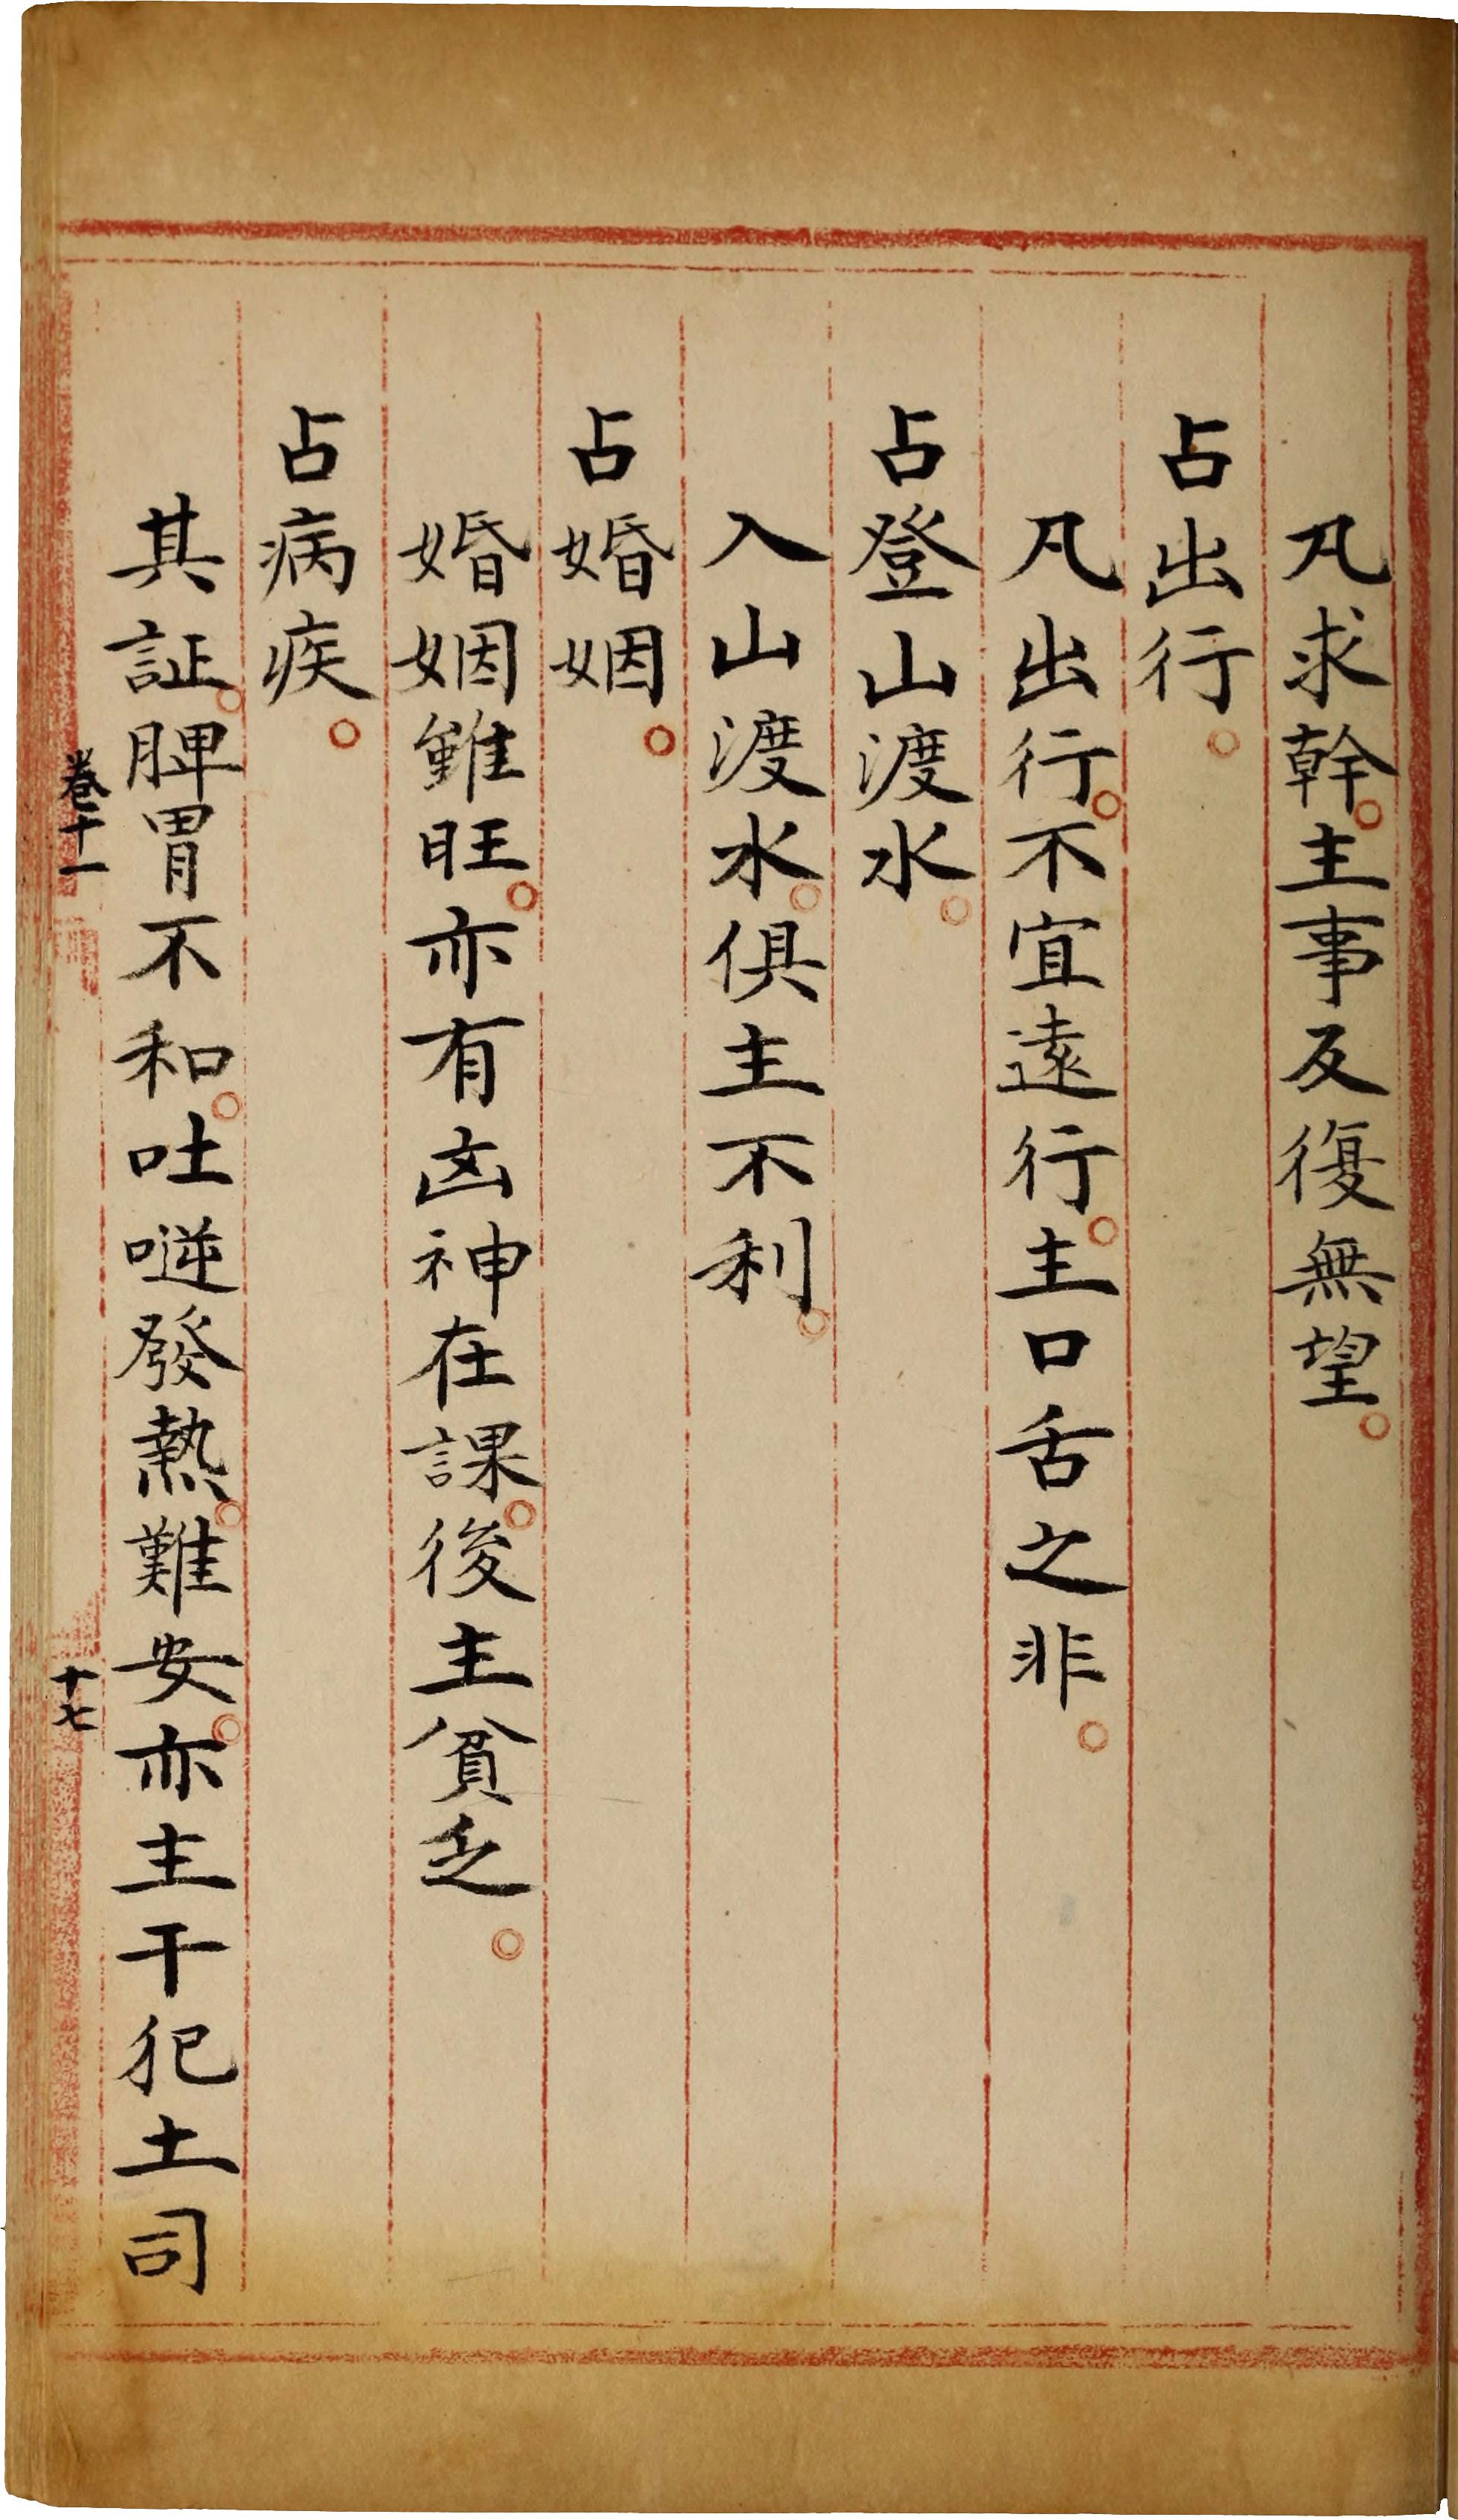 凡求幹。主事反復無望。
占出行。
凡出行。不宜遠行。主口舌之非。
占登山渡水。
入山渡水。俱主不利。
占婚姻。
婚姻雖旺。亦有凶神在課。後主貧乏。
占病疾。
其証。脾胃不和。吐噬發熱。難安。亦主干犯土司
卷十一
十七